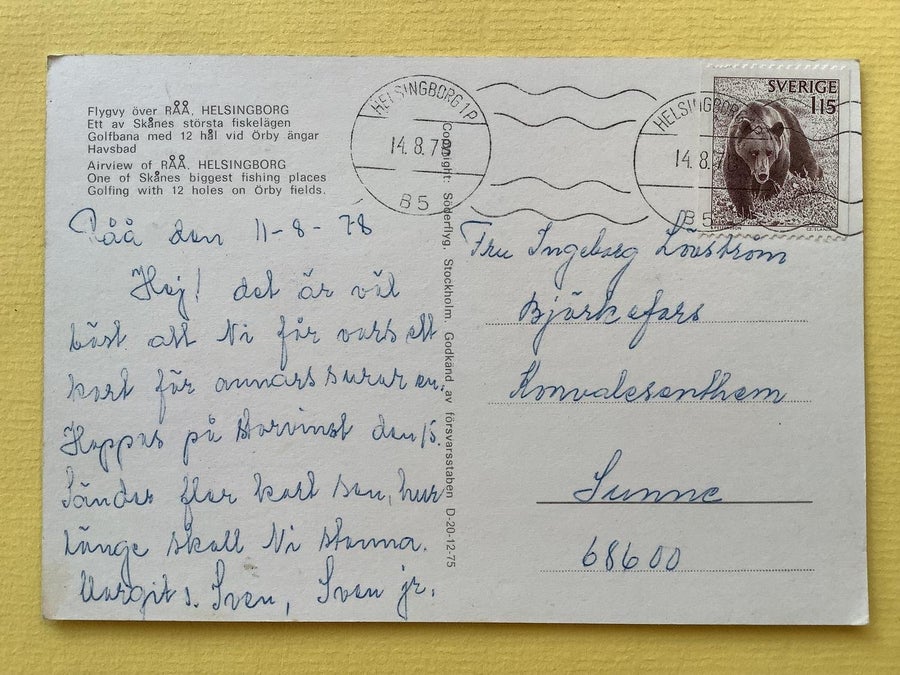 Flygvy över RÅÅ, HELSINGBORG
Ett av Skånes största fiskelägen
Golfbana med 12 hål vid Örby ängar
Havsbad
Airview of RÅÅ. HELSINGBORG
One of Skånes biggest fishing places
Golfing with 12 holes on Örby fields.
Råå den 11-8-78
Hej! det är väl
bäst att Ni får vars ett
kort för annars surar en.
Hoppas på storvinst den 15.
Sänder fler kort sen, hur
länge skall Ni stanna.
Margit s. Sven, Sven jr.
Copyright: Söderflyg. Stockholm. Godkänd av försvarsstaben D-20-12-75
HELSINGBORG 1P
14.8.78
B5
HELSINGBORG
14.8.7
B5
SVERIGE
115
Fru Ingeborg Lövström
Björkefors
Konvalesenthem
Sunne
68600